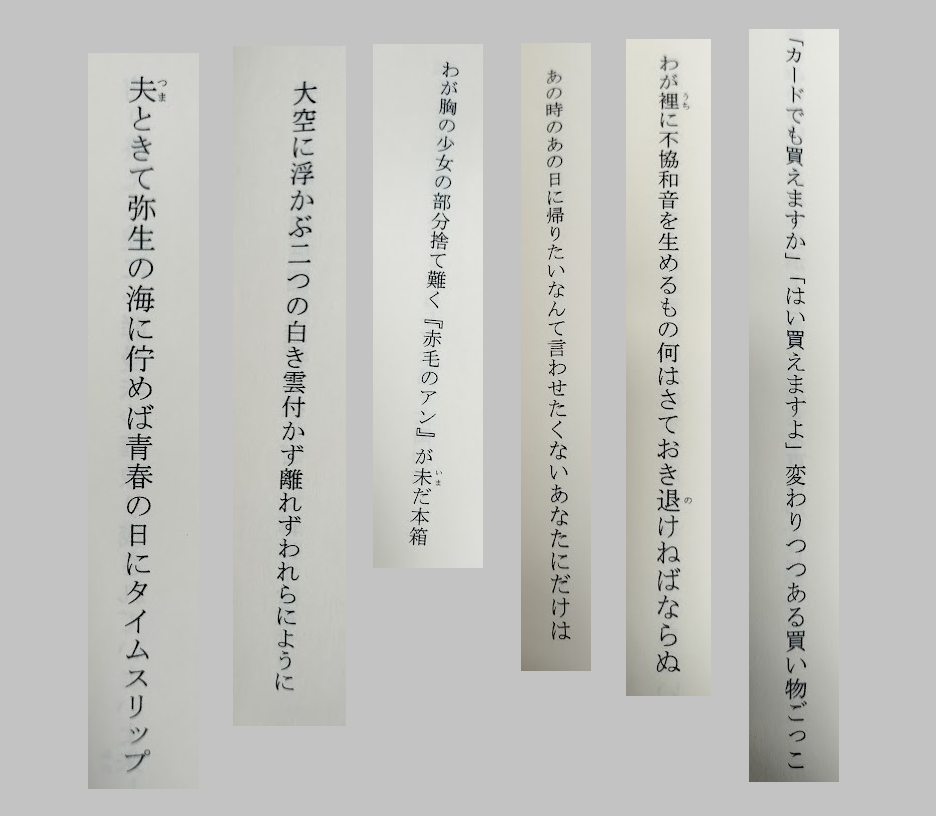 「カードでも買えますか」「はい買えますよ」変わりつつある買い物ごっこ
わが裡に不協和音を生めるもの何はさておき退けねばならぬ
あの時のあの日に帰りたいなんて言わせたくないあなたにだけは
わが胸の少女の部分捨て難く『赤毛のアン』が未だ本箱
大空に浮かぶ二つの白き雲付かず離れずわれらにように
夫ときて弥生の海に佇めば青春の日にタイムスリップ